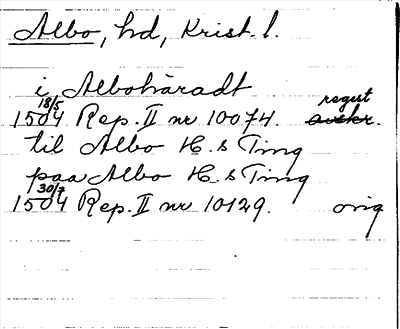 Albo, hd, Krist. l.
i Albohäradt
18/5 regest
1504 Rep. II nr 10074. avskr.
til Albo H. s Ting
paa Albo H. s Ting
30/7
1504 Rep. II nr 10129. orig